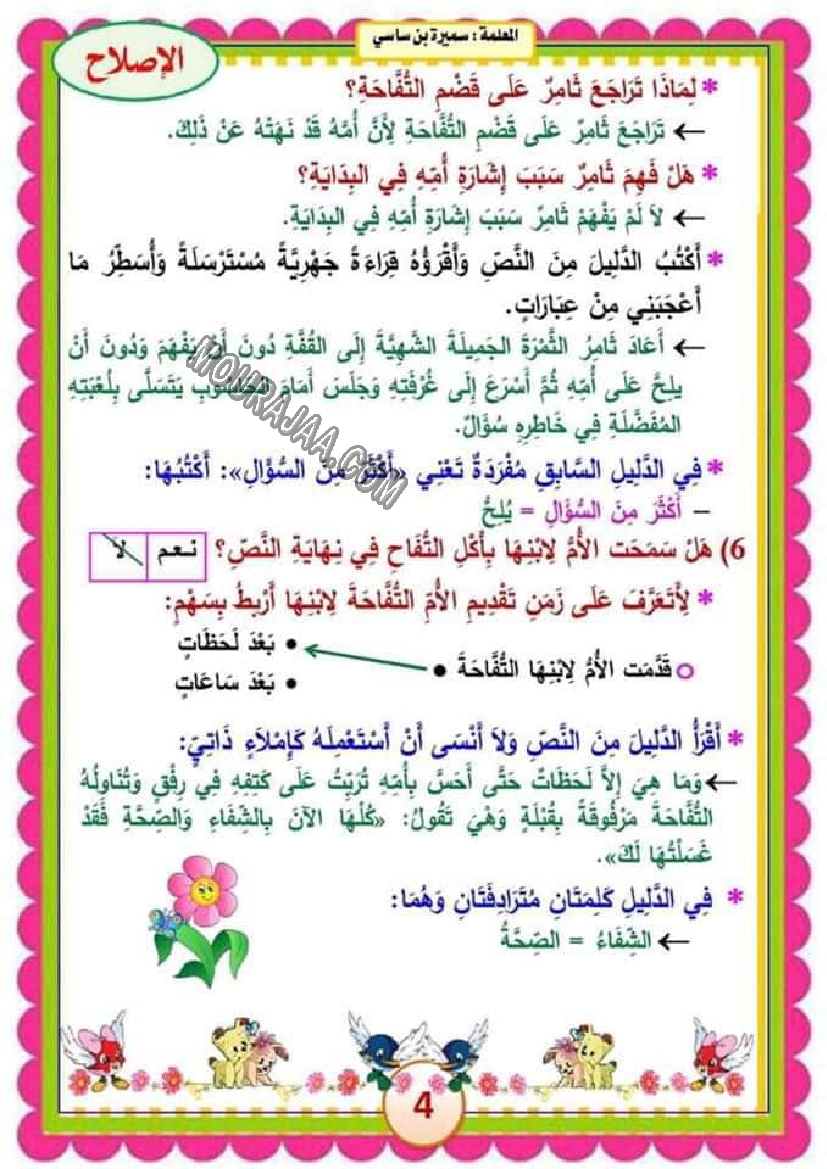 المعلمة : سميرة بن ساسي
الإصلاح
* لِمَاذَا تَرَاجَعَ ثَامِرٌ عَلَى قَضْمِ التُّفَّاحَةِ؟
← تَرَاجَعَ ثَامِرٌ عَلَى قَضْمِ التُّفَّاحَةِ لِأَنَّ أُمَّهُ قَدْ نَهَتْهُ عَنْ ذَلِكَ.
* هَلْ فَهِمَ ثَامِرٌ سَبَبَ إِشَارَةِ أُمِّهِ فِي البِدَايَةِ؟
← لاَ لَمْ يَفْهَمْ ثَامِرٌ سَبَبَ إِشَارَةِ أُمِّهِ فِي البِدَايَةِ.
* أَكْتُبُ الدَّلِيلَ مِنَ النَّصِّ وَأَقْرَؤُهُ قِرَاءَةً جَهْرِيَّةً مُسْتَرْسَلَةً وَأُسَطِّرُ مَا
أَعْجَبَنِي مِنْ عِبَارَاتٍ.
← أَعَادَ ثَامِرُ الثَّمْرَةَ الجَمِيلَةَ الشَّهِيَّةَ إِلَى القُفَّةِ دُونَ أَنْ يَفْهَمَ وَدُونَ أَنْ
يلِحَّ عَلَى أُمِّهِ ثُمَّ أَسْرَعَ إِلَى غُرْفَتِهِ وَجَلَسَ أَمَامَ الحَاسُوبِ يَتَسَلَّى بِلُعْبَتِهِ
المُفَضَّلَةِ فِي خَاطِرِهِ سُؤَالٌ.
MOURAJAA.COM
* فِي الدَّلِيلِ السَّابِقِ مُفْرَدَةٌ تَعْنِي «أَكْثَرَ مِنَ السُّؤَالِ»: أَكْتُبُهَا:
– أَكْثَرَ مِنَ السُّؤَالِ = يُلِحُّ
6) هَلْ سَمَحَت الأُمُّ لِابْنِهَا بِأَكْلِ التُّفَاحِ فِي نِهَايَةِ النَّصِّ؟ نعم لا
* لِأَتَعَرَّفَ عَلَى زَمَنِ تَقْدِيمِ الأُمِّ التُّفَّاحَةَ لِابْنِهَا أَرْبِطُ بِسَهْمٍ:
• بَعْدَ لَحَظَاتٍ
قَدَّمَت الأُمُّ لِابْنِهَا التُّفَّاحَةَ •
• بَعْدَ سَاعَاتٍ
* أَقْرَأُ الدَّلِيلَ مِنَ النَّصِّ وَلاَ أَنْسَى أَنْ أَسْتَعْمِلَهُ كَإِمْلاَءٍ ذَاتِيٍّ:
← وَمَا هِيَ إِلاَّ لَحَظَاتٌ حَتَّى أَحَسَّ بِأُمِّهِ تُرَبِّتُ عَلَى كَتِفِهِ فِي رِفْقٍ وَتُنَاوِلُهُ
التُّفَّاحَةَ مَرْفُوقَةً بِقُبْلَةٍ وَهْيَ تَقُولُ: «كُلْهَا الآنَ بِالشِّفَاءِ وَالصِّحَّةِ فَقَدْ
غَسَلْتُهَا لَكَ».
* فِي الدَّلِيلِ كَلِمَتَانِ مُتَرَادِفَتَانِ وَهُمَا:
← الشِّفَاءُ = الصِّحَّةُ
4